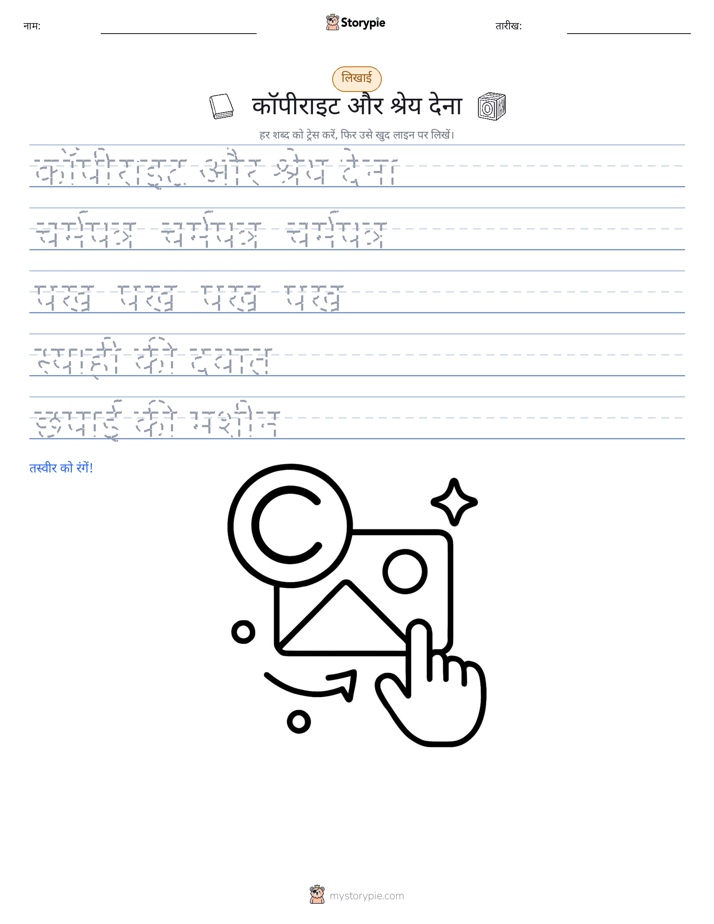 नाम:
Storypie
तारीख:
लिखाई
कॉपीराइट और श्रेय देना
हर शब्द को ट्रेस करें, फिर उसे खुद लाइन पर लिखें।
कॉपीराइट और श्रेय देना
चर्मपत्र चर्मपत्र चर्मपत्र
पंख पंख पंख पंख
स्याही की दवात
छपाई की मशीन
तस्वीर को रंगें!
C
mystorypie.com